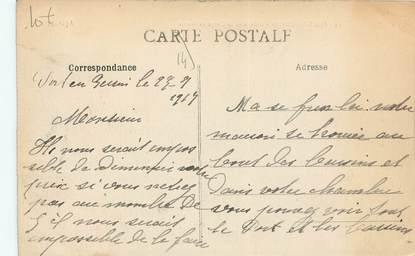 Lot
CARTE POSTALE
Correspondance
Adresse
en Bessin le 23-9
1917
Monsieur
Il nous serait impos
sible de diminuer votre
prix si vous
pas au nombre de
5 il nous serait
impossible de le faire
votre
maison se trouve au
bout des bassins et
dans votre chambre
vous pouvez voir tout
le Port et les bassins